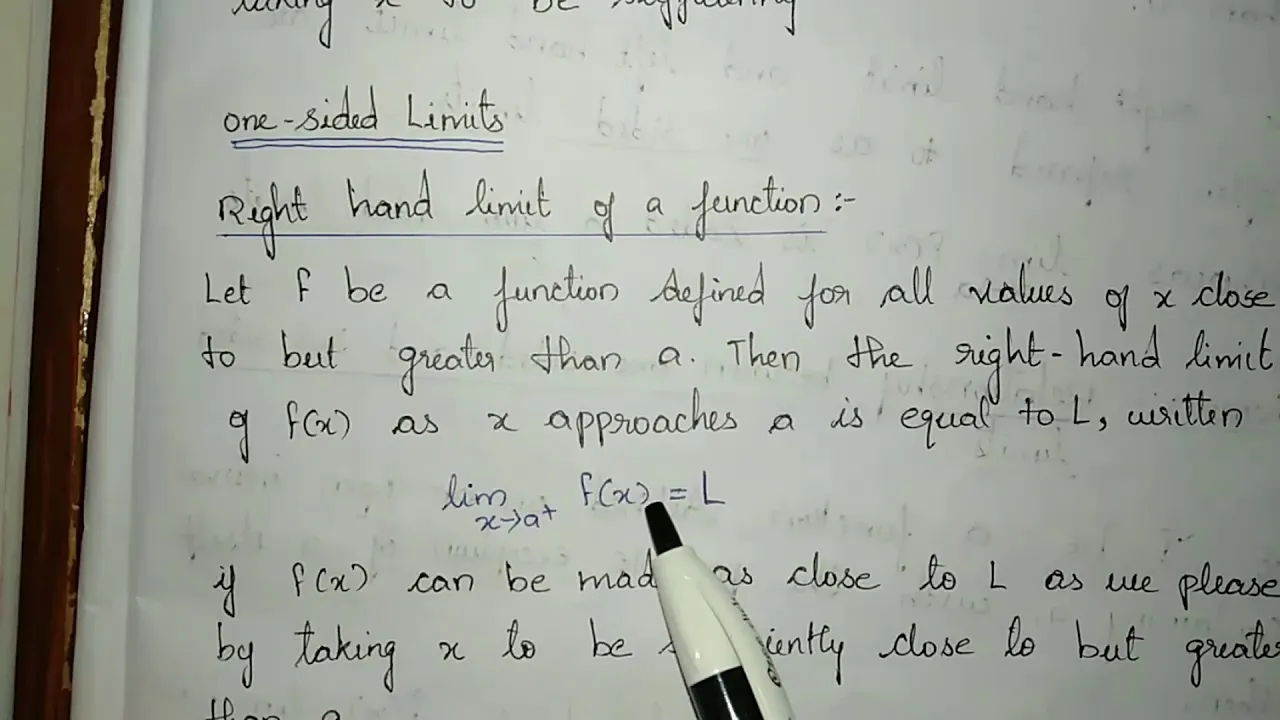 taking x to be
one-sided Limits
Right hand limit of a function :-
Let f be a function defined for all values of x close
to but greater than a. Then the right-hand limit
of f(x) as x approaches a is equal to L, written
lim f(x) = L
x→a+
if f(x) can be made as close to L as we please
by taking x to be close to but greater
than a